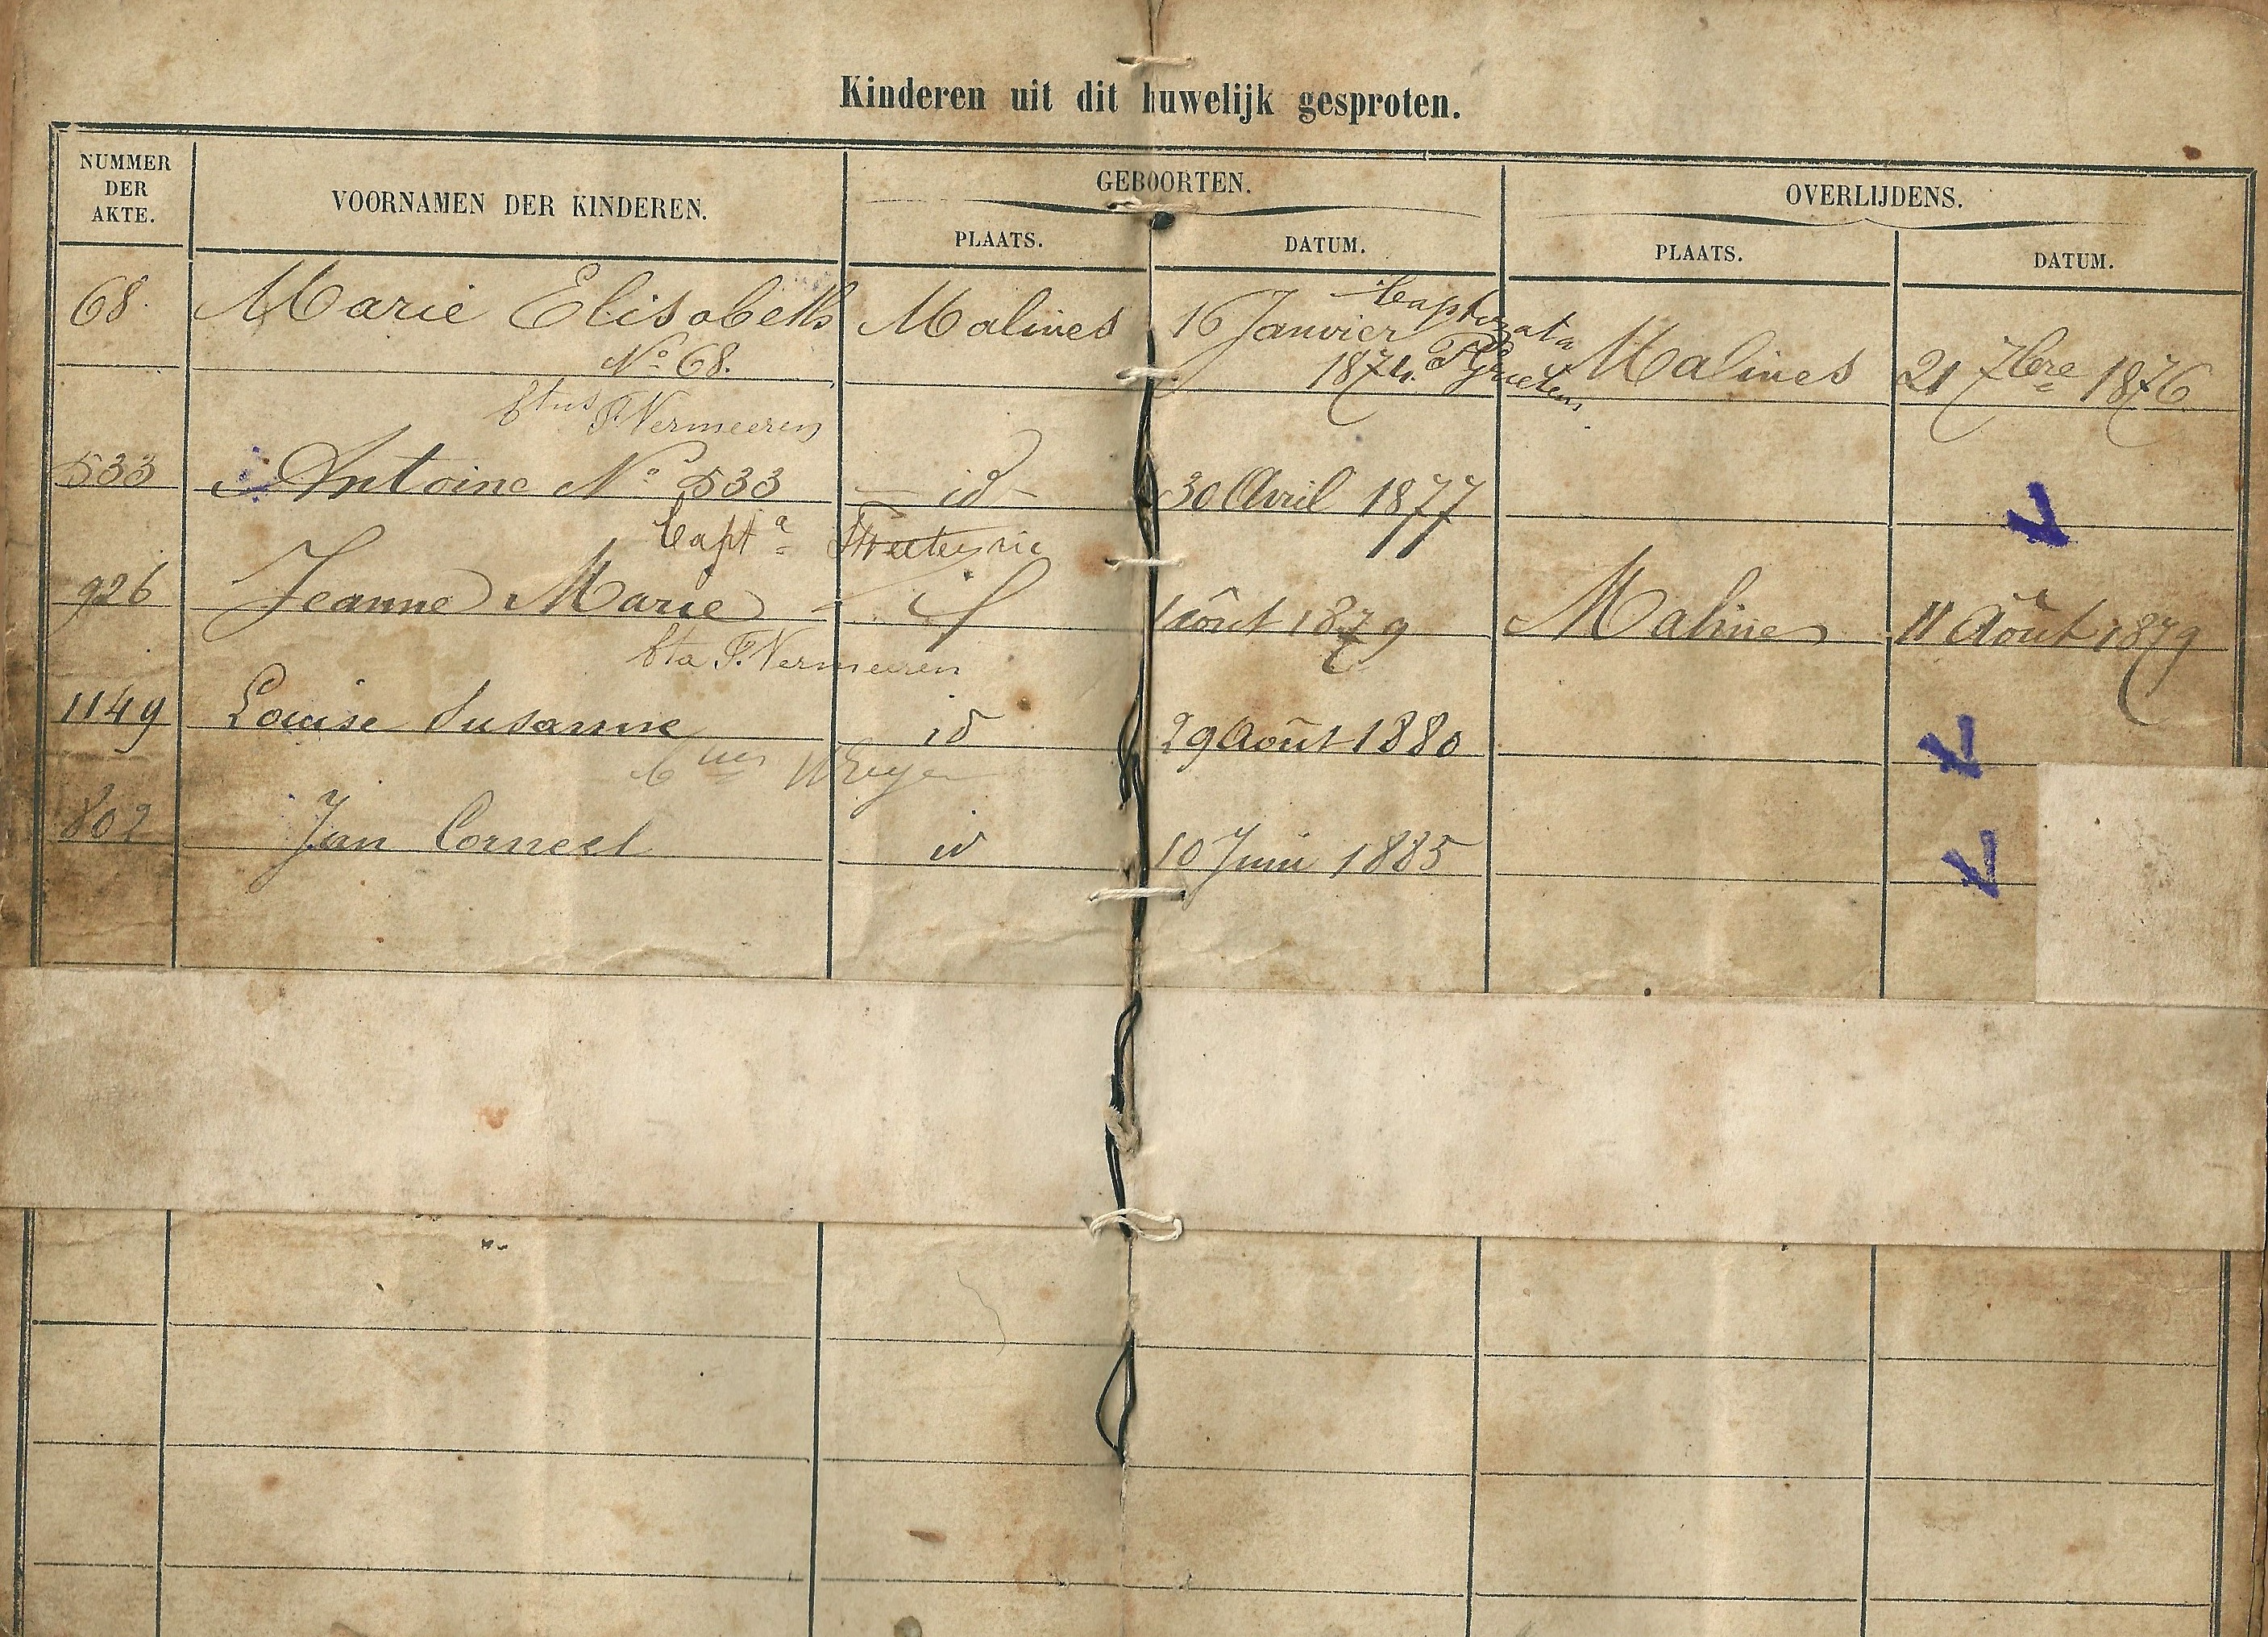 Kinderen uit dit huwelijk gesproten.
NUMMER DER AKTE.
VOORNAMEN DER KINDEREN.
GEBOORTEN.
OVERLIJDENS.
PLAATS.
DATUM.
PLAATS.
DATUM.
68. Marie Elisabeth Malines 16 Janvier Baptizata
No 68. 1874. Malines 21 7bre 1876
btus P. Vermeeren
533 Antoine No 533 id 30 Avril 1877
Bapta
926 Jeanne Marie id 1 Août 1879 Malines 11 Août 1879
bta P. Vermeeren
1149 Louise Susanne id 29 Août 1880
802 Jan Corneel id 10 Juin 1885